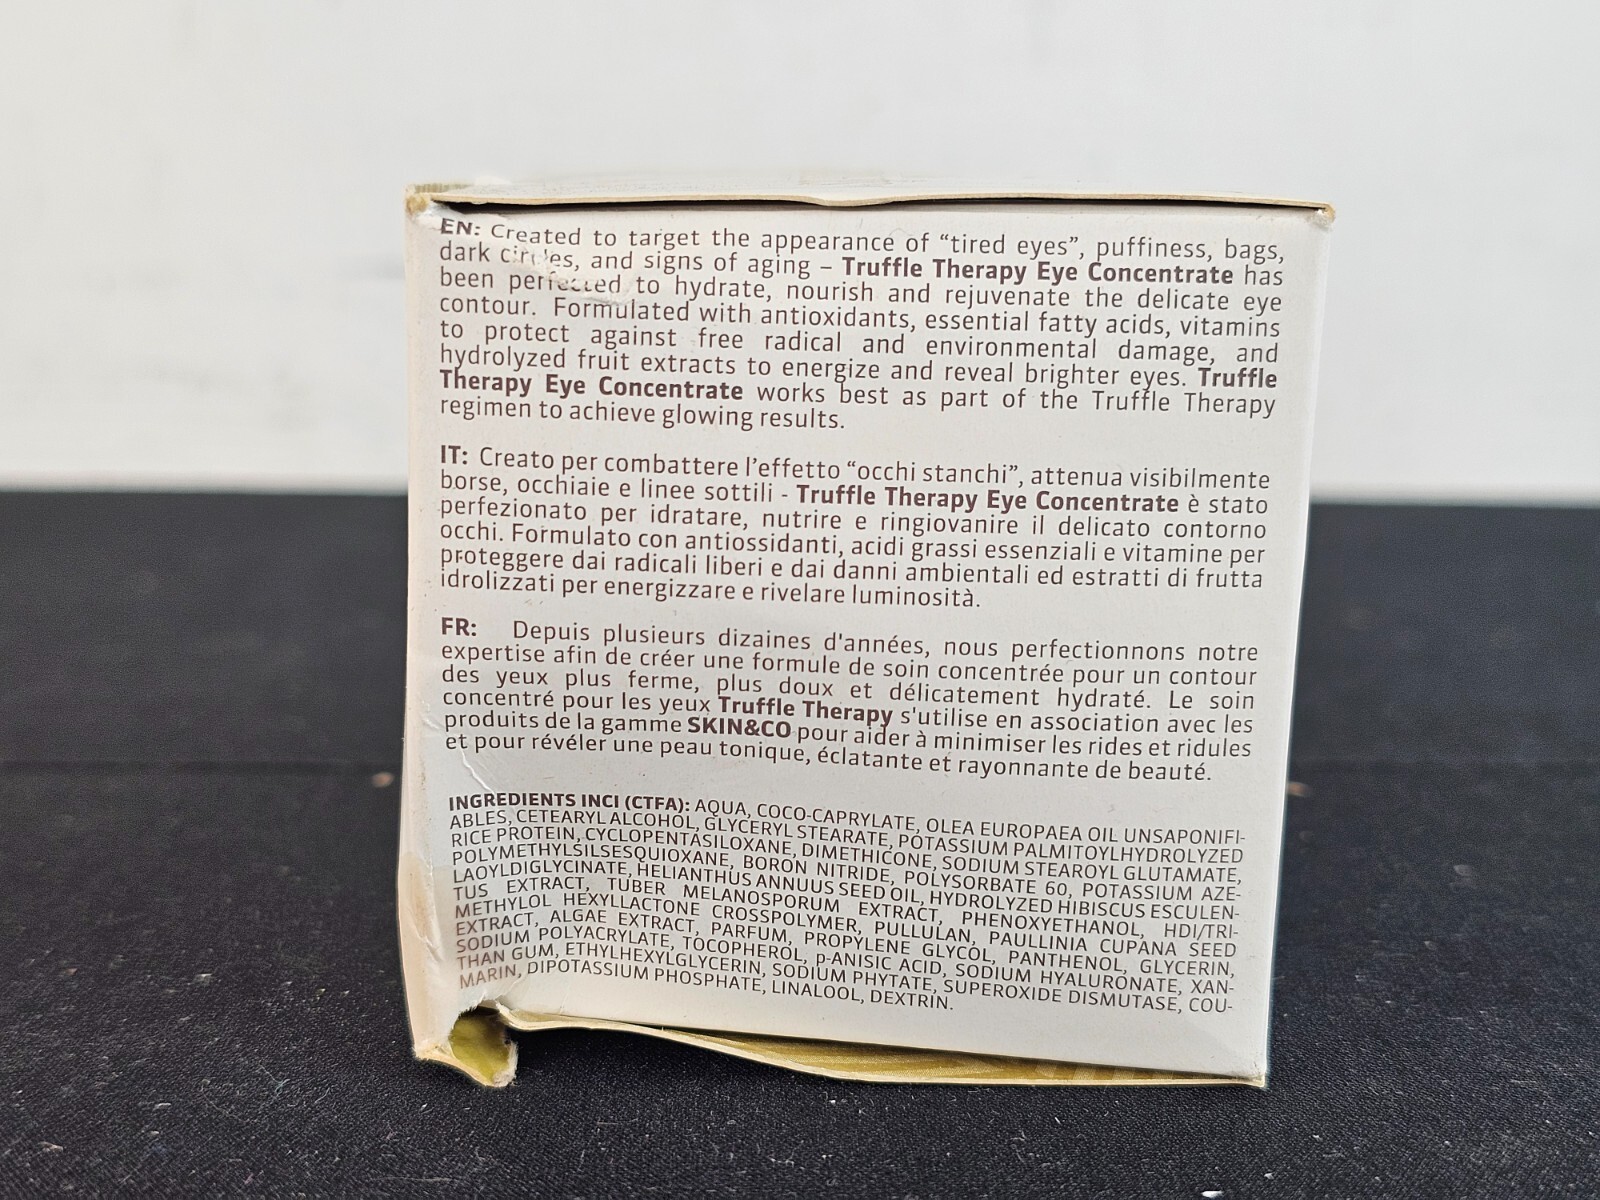 EN: Created to target the appearance of “tired eyes”, puffiness, bags,
dark circles, and signs of aging – Truffle Therapy Eye Concentrate has
been perfected to hydrate, nourish and rejuvenate the delicate eye
contour. Formulated with antioxidants, essential fatty acids, vitamins
to protect against free radical and environmental damage, and
hydrolyzed fruit extracts to energize and reveal brighter eyes. Truffle
Therapy Eye Concentrate works best as part of the Truffle Therapy
regimen to achieve glowing results.
IT: Creato per combattere l’effetto “occhi stanchi”, attenua visibilmente
borse, occhiaie e linee sottili - Truffle Therapy Eye Concentrate è stato
perfezionato per idratare, nutrire e ringiovanire il delicato contorno
occhi. Formulato con antiossidanti, acidi grassi essenziali e vitamine per
proteggere dai radicali liberi e dai danni ambientali ed estratti di frutta
idrolizzati per energizzare e rivelare luminosità.
FR: Depuis plusieurs dizaines d'années, nous perfectionnons notre
expertise afin de créer une formule de soin concentrée pour un contour
des yeux plus ferme, plus doux et délicatement hydraté. Le soin
concentré pour les yeux Truffle Therapy s'utilise en association avec les
produits de la gamme SKIN&CO pour aider à minimiser les rides et ridules
et pour révéler une peau tonique, éclatante et rayonnante de beauté.
INGREDIENTS INCI (CTFA): AQUA, COCO-CAPRYLATE, OLEA EUROPAEA OIL UNSAPONIFI-
ABLES, CETEARYL ALCOHOL, GLYCERYL STEARATE, POTASSIUM PALMITOYLHYDROLYZED
RICE PROTEIN, CYCLOPENTASILOXANE, DIMETHICONE, SODIUM STEAROYL GLUTAMATE,
POLYMETHYLSILSESQUIOXANE, BORON NITRIDE, POLYSORBATE 60, POTASSIUM AZE-
LAOYLDIGLYCINATE, HELIANTHUS ANNUUS SEED OIL, HYDROLYZED HIBISCUS ESCULEN-
TUS EXTRACT, TUBER MELANOSPORUM EXTRACT, PHENOXYETHANOL, HDI/TRI-
METHYLOL HEXYLLACTONE CROSSPOLYMER, PULLULAN, PAULLINIA CUPANA SEED
EXTRACT, ALGAE EXTRACT, PARFUM, PROPYLENE GLYCOL, PANTHENOL, GLYCERIN,
SODIUM POLYACRYLATE, TOCOPHEROL, p-ANISIC ACID, SODIUM HYALURONATE, XAN-
THAN GUM, ETHYLHEXYLGLYCERIN, SODIUM PHYTATE, SUPEROXIDE DISMUTASE, COU-
MARIN, DIPOTASSIUM PHOSPHATE, LINALOOL, DEXTRIN.